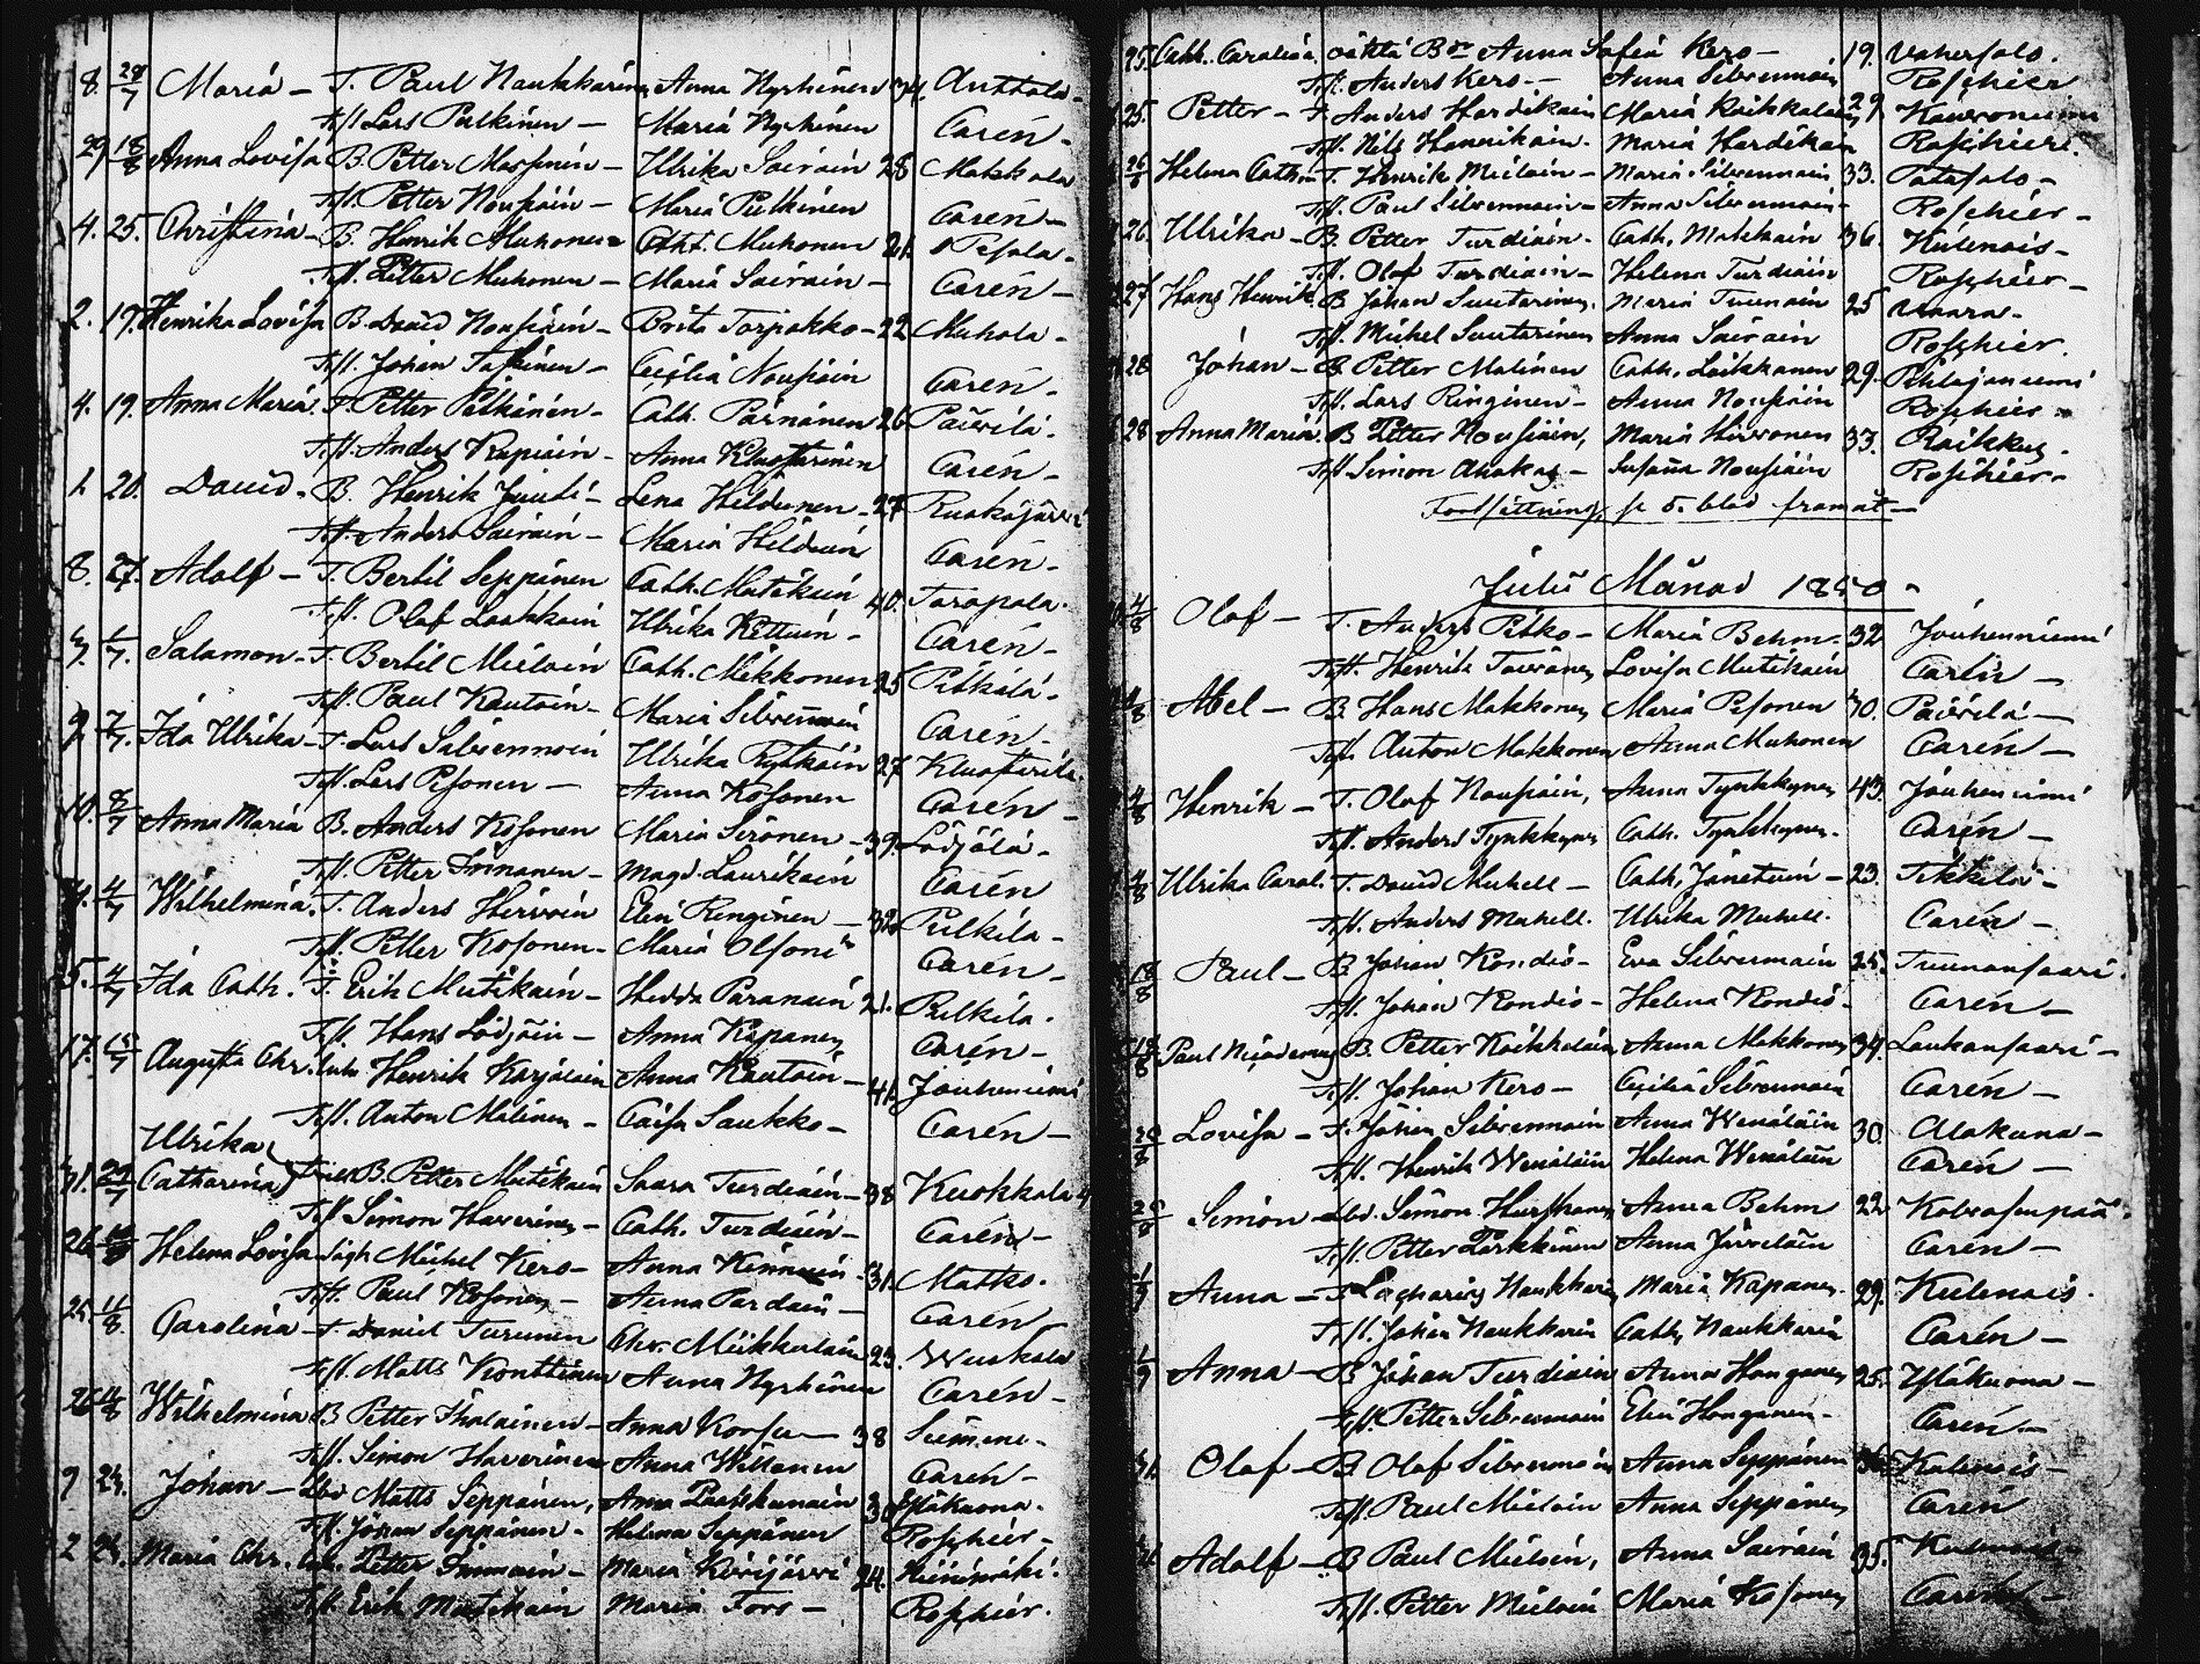 8. 28/7 Maria - T. Paul Naukkarinen Anna Nyrhinen 34. Anttola -
Test. Lars Pulkinen - Maria Nyrhinen Carén -
29 18/8 Anna Lovisa B. Petter Massinen - Ulrika Sairain 28 Makkola
Test. Petter Nousiäin - Maria Pulkinen Carén -
4. 25. Christina - B. Henrik Muhonen Cath. Muhonen 21. Pesola -
Test. Petter Muhonen - Maria Sairain - Carén -
2. 19. Henrika Lovisa B. David Nousiäin - Brita Torjakko - 22 Muhola -
Test. Johan Taskinen - Cecilia Nousiain Carén -
4. 19. Anna Maria. T. Petter Pitkänen - Cath. Pärnänen 26 Päivilä.
Test. Anders Kapiain - Anna Kluostarinen Carén -
1. 20. David. B. Henrik Juuti - Lena Hildunen - 27 Ruokojärvi
Test. Anders Sairain - Maria Hilduin Carén -
8. 27. Adolf - T. Bertil Seppänen Cath. Mutikain 40. Torapala.
Test. Olof Laukkain Ulrika Kettuin - Carén -
1/7. Salamon - T. Bertil Mieloin Cath. Mikkonen 25 Pitkälä -
Test. Paul Kautoin - Maria Silvennoin Carén -
9. 7/7. Ida Ulrika - T. Lars Silvennoin Ulrika Rytkäin 27 Kluostarila.
Test. Lars Pesonen - Anna Kosonen Carén -
10. 8/7 Anna Maria B. Anders Kosonen Maria Sironen - 39. Lödjölä -
Test. Petter Immonen - Magd. Laurikain Carén
4/7 Wilhelmina. T. Anders Hirvoin Elin Renginen - 32 Pulkila -
Test. Petter Kosonen - Maria Olsoni Carén -
5. 4/7 Ida Cath. T. Erik Mutikain - Hedda Paranain 21. Pulkila.
Test. Hans Lödjöin - Anna Kapanen Carén -
17. 15/7 Augusta Chr. Inh. Henrik Karjalain Anna Kautoin - 41. Jouhenniemi
Test. Anton Malinen - Caisa Saukko - Carén -
Ulrika
21/7 Catharina B. Petter Mutikain Saara Turdiain - 38 Kuokkala
Test Simon Haverinen - Cath. Turdiain - Carén -
26. Helena Lovisa Michel Kero - Anna Kinnuin - 31. Matko.
Test. Paul Kosonen - Anna Pardain - Carén
25. 11/8. Carolina - T. Daniel Turunen Chr. Miikkulain 23. Wuokala
Test. Matts Konttinen Anna Nyrhinen Carén -
26 11/8 Wilhelmina B Petter Ihalainen - Anna Korsu - 38 Suomene -
Test. Simon Haverinen Anna Willanen Carén -
9 24. Johan - Lbd Matts Seppänen, Anna Laakkunain 30 Ylläkuona.
Test. Johan Seppänen - Helena Seppänen Roschier -
2 24. Maria Chr. Inh. Petter Immoin - Maria Kivijärvi 24. Heinimäki.
Test. Erik Mutikain Maria Fors - Roschier.
25. Cath. Carolina, oäkta Bdr Anna Sofia Kero - 19. Vakersalo.
Test. Anders Kero. - Anna Silvennoin Roschier
25. Petter - T. Anders Hardikain Maria Räikkoläin 29. Kauvoniemi
Test. Nils Hannikain. Maria Hardikain Roschier.
26/6 Helena Cathrin T. Henrik Mieloin - Maria Silvennoin 33. Patasalo -
Test. Paul Silvennoin - Anna Silvennoin - Roschier -
26. Ulrika - B. Petter Turdiain - Cath. Makkoin 36. Kulenois -
Test. Olof Turdiain - Helena Turdiain Roschier -
27 Hans Henrik. B Johan Suutarinen, Maria Tuunain 25 Vaara -
Test. Michel Suutarinen Anna Sairain Roschier.
28 Johan - B. Petter Malinen Cath. Läikkanen 29. Pihlajaniemi
Test. Lars Ringinen - Anna Nousiain Roschier -
28. Anna Maria. B Petter Nousiain, Maria Hirvonen 33. Räikkus.
Test Simon Ahakas - Susanna Nousiain Roschier -
Fortsättning se 5. blad framåt -
Julii Månad 1850 -
4/8 Olof - T. Anders Pitko - Maria Behm - 32 Jouhenniemi
Test. Henrik Toivanen, Lovisa Mutikain Carén -
4/8 Abel - B. Hans Makkonen Maria Pesonen 30. Päivilä -
Test. Anton Makkonen Anna Muhonen Carén -
4/8 Henrik - T. Olof Nousiain, Anna Tynkkynen 43. Jouhenniemi
Test. Anders Tynkkynen Cath. Tynkkynen - Carén -
4/8 Ulrika Carol. T. David Muhell - Cath. Jänetuin - 23. Tikkila -
Test. Anders Muhell. Ulrika Muhell. Carén -
18/8 Paul - B. Johan Kondio - Eva Silvennoin 25. Tuunansaari.
Test. Johan Kondio - Helena Kondio - Carén -
18/8 Paul Nicodemus B. Petter Räikkoläin Anna Makkonen 34. Laukansaari -
Test. Johan Kero - Cecilia Silvennoin Carén -
20/8 Lovisa - T. Johan Silvennoin Anna Wenäläin 30. Alakuna -
Test. Henrik Wenäläin Helena Wenäläin Carén -
25/8 Simon - Lbd. Simon Hurskanen Anna Behm 22 Kolvosenpää.
Test. Petter Parkkinen Anna Järveläin Carén -
1/9 Anna - T. Zacharias Naukkarin Maria Kapanen. 29. Kulenois.
Test. Johan Naukkarin Cath. Naukkarin Carén -
1/9 Anna - B Johan Turdiain Anna Honganen 25. Ylläkuona -
Test. Petter Silvennoin Elin Honganen - Carén -
Olof - B Olof Silvennoin Anna Seppänen 36 Kulenois -
Test. Paul Mieloin Anna Seppänen Carén
Adolf - B Paul Mieloin, Anna Sairain 35. Kulenois
Test. Petter Mieloin Maria Kosonen Carén -